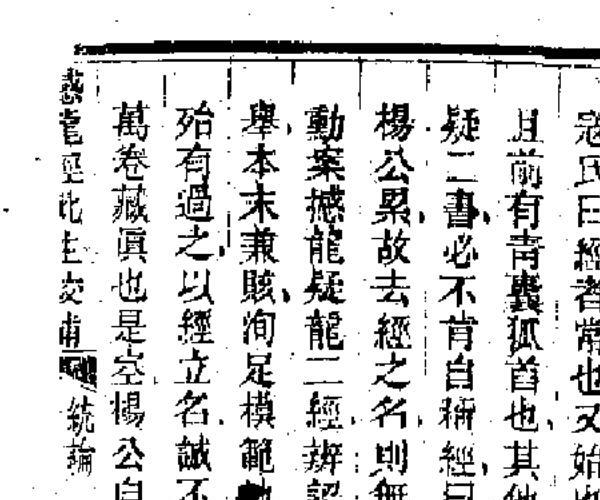 冦氏曰經者常也又始
且前有青囊狐首也其他
疑二書必不肯自稱經曰
楊公累故去經之名則無
動案撼龍疑龍二經辨
舉本末兼賅洵足模範
殆有過之以經立名誠不
萬卷藏眞也是至楊公自
感龍經批生校補
統論